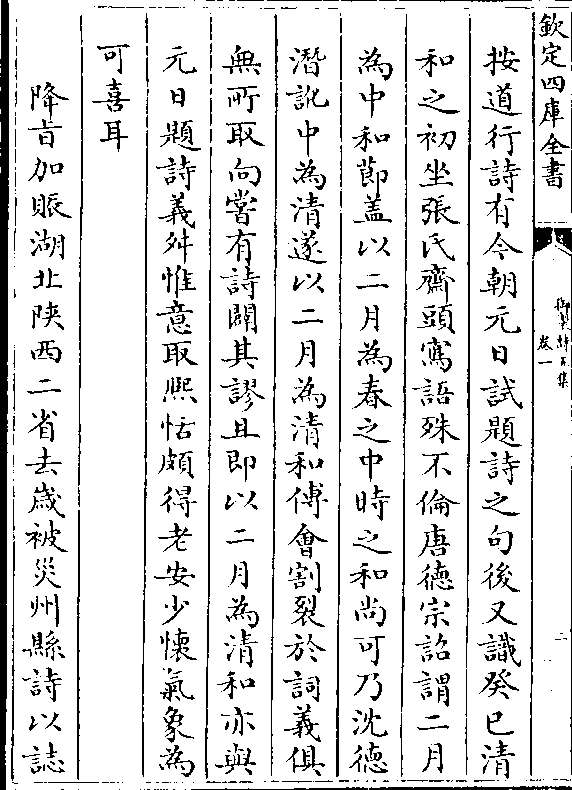 欽定四庫全書
御製詩五集
卷一
二
按道行詩有今朝元日試題詩之句後又識癸巳清
和之初坐張氏齋頭寫語殊不倫唐德宗詔謂二月
為中和節盖以二月為春之中時之和尚可乃沈德
潛訛中為清遂以二月為清和傅會割裂於詞義俱
無所取向嘗有詩闢其謬且即以二月為清和亦與
元日題詩義舛惟意取熈恬頗得老安少懷氣象為
可喜耳
降旨加賑湖北陜西二省去歲被災州縣詩以誌